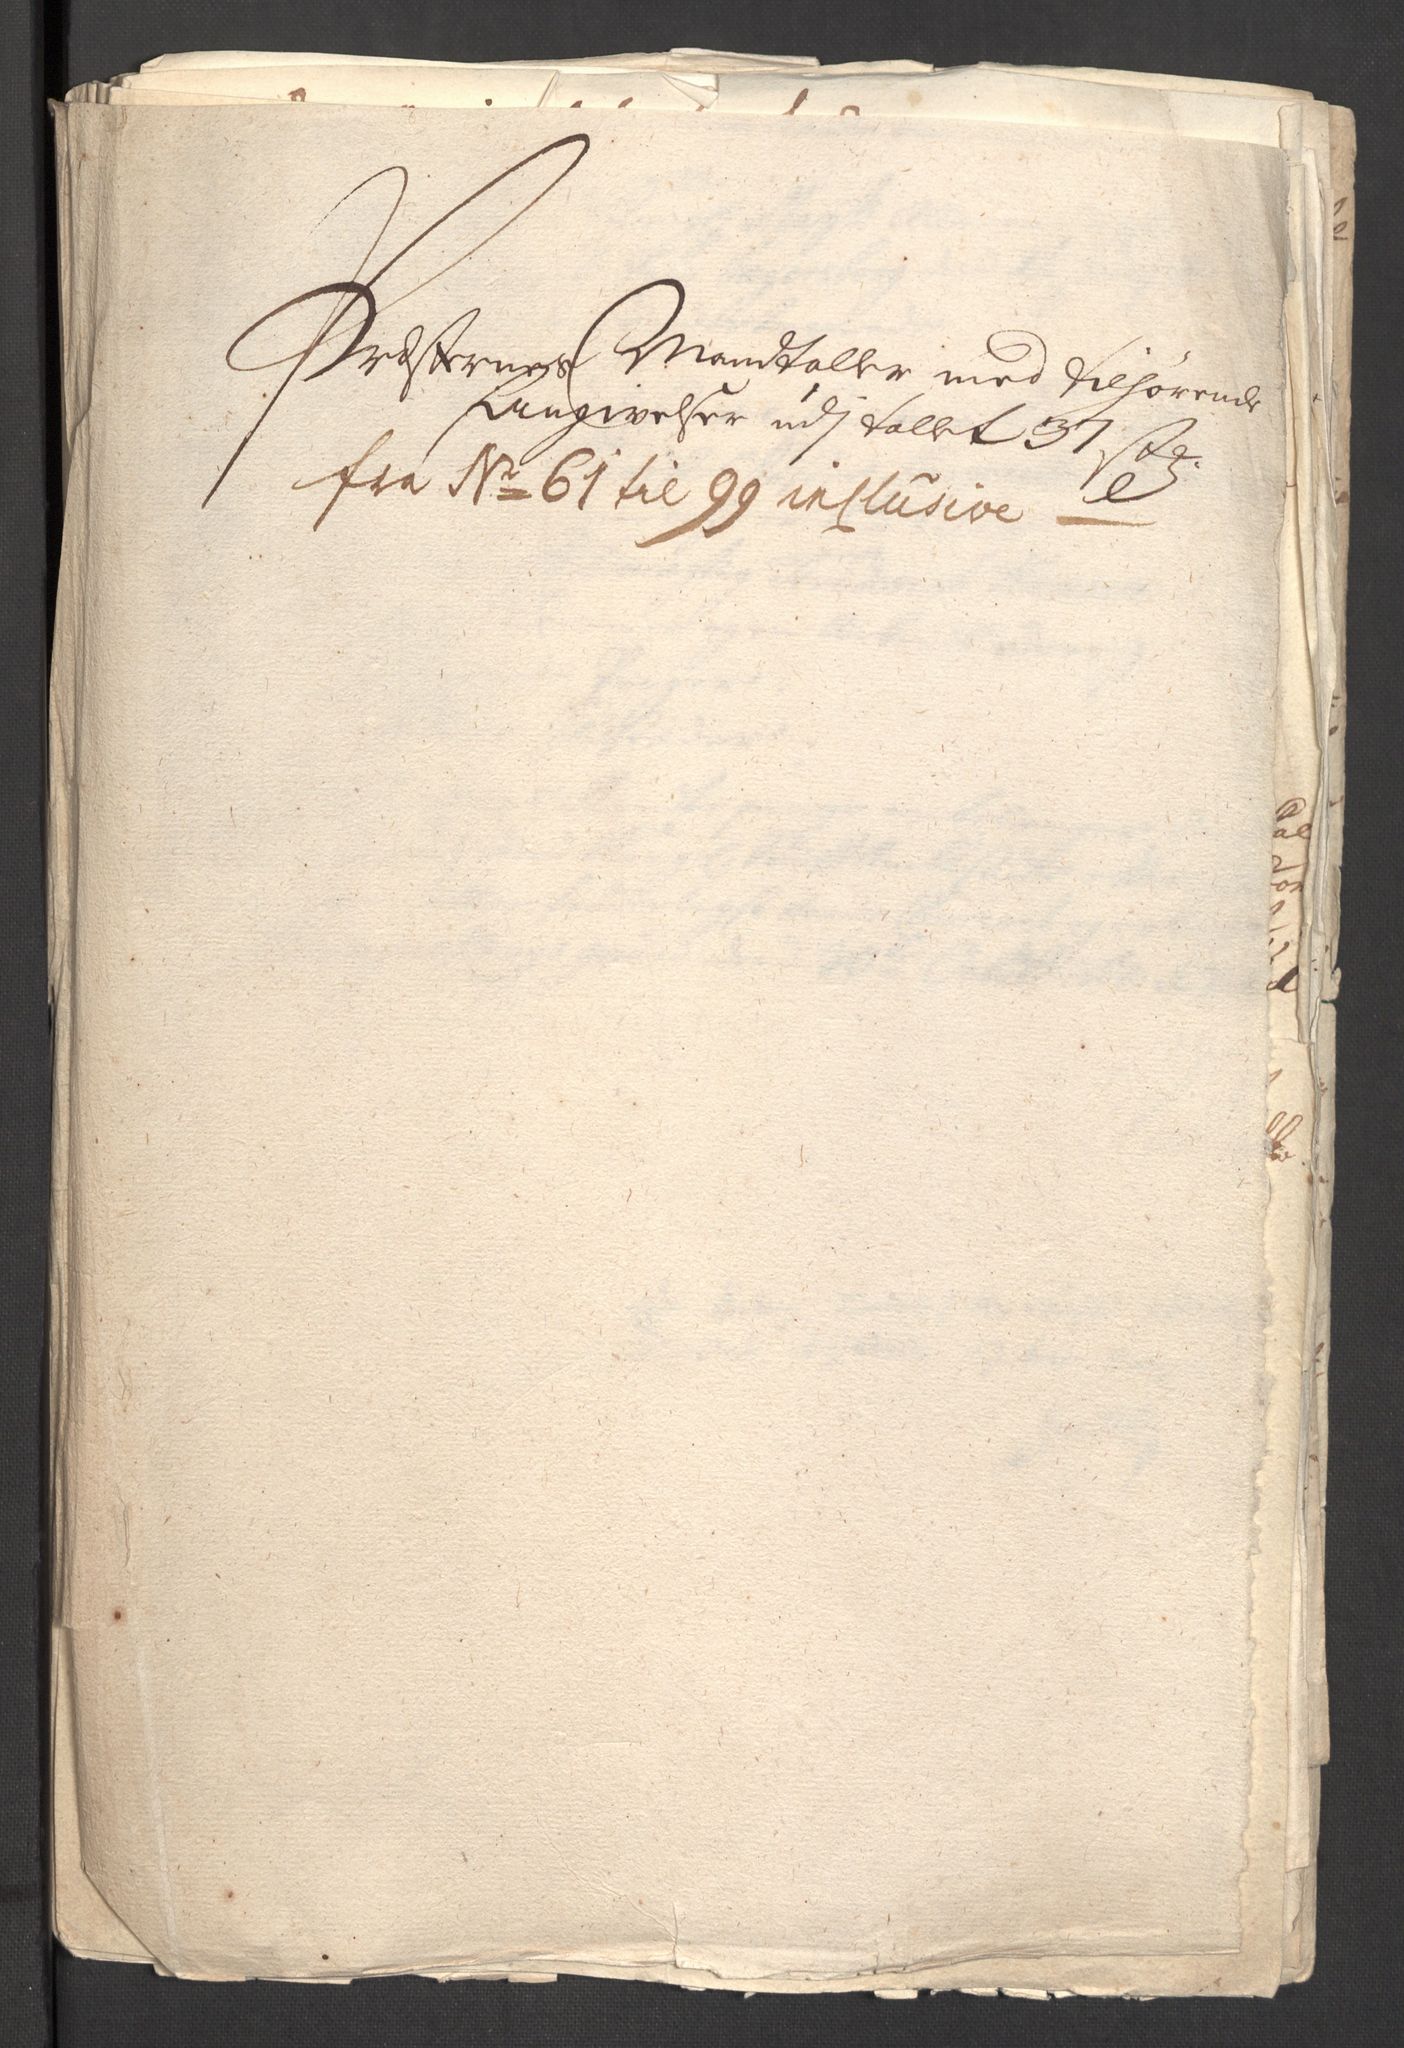 Præsternes Mandtaller med tilhørende
Angivelser udj tallet 37 st
fra No 61 til 99 inclusive